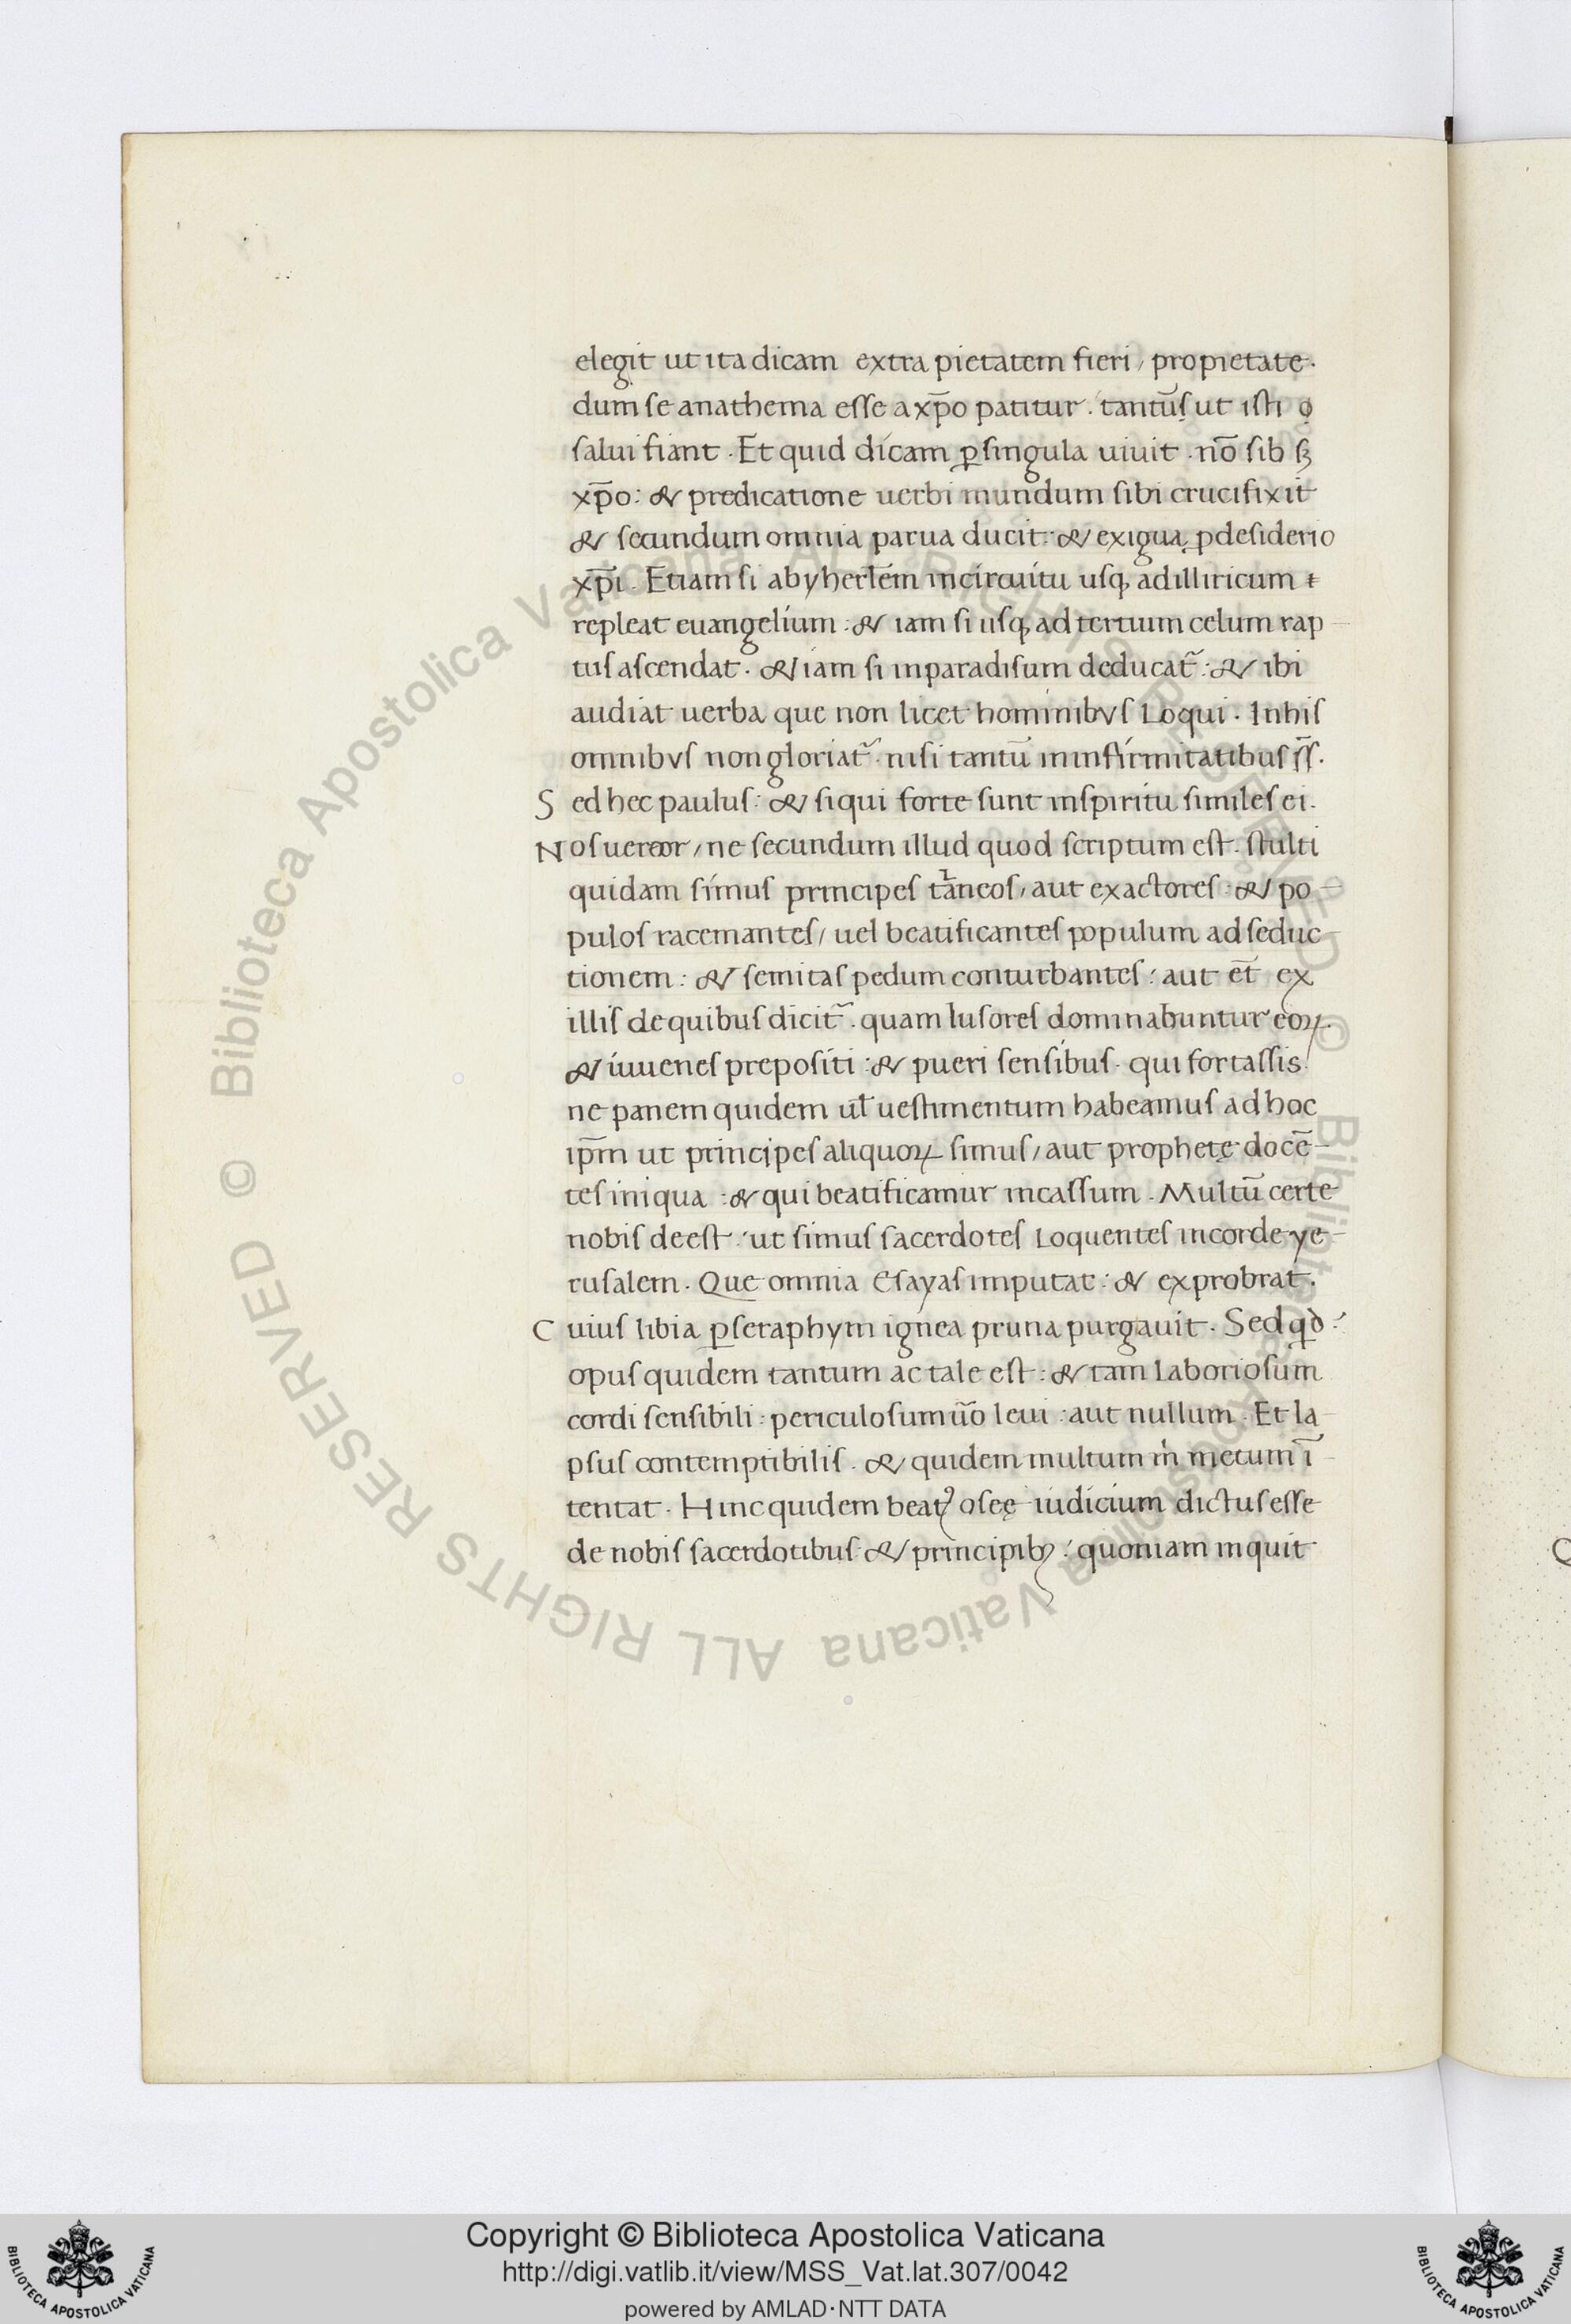 elegit ut ita dicam extra pietatem fieri / pro pietate.
dum se anathema esse a xp̄o patitur. tantūs ut isti o
salui fiant. Et quid dicam ꝑ singula uiuit. nō sib sꝫ
xp̄o: & predicatione uerbi mundum sibi crucifixit
& secundum omnia parua ducit: & exigua. ꝓ desiderio
xp̄i. Etiam si ab yherl̄em in circuitu usqꝫ ad illiricum
repleat euangelium: & iam si usqꝫ ad tertium celum rap
tus ascendat. & iam si in paradisum deducat᷑: & ibi
audiat uerba que non licet hominibus Loqui. In his
omnibus non gloriat᷑. nisi tantū in infirmitatibus s̄s.
Sed hec paulus: & si qui forte sunt in spiritu similes ei.
Nos uereor / ne secundum illud quod scriptum est. stulti
quidam simus principes tāneos / aut exactores: & po
pulos racemantes / uel beatificantes populum ad seduc
tionem: & semitas pedum conturbantes: aut et̄ ex
illis de quibus dicit᷑. quam lusores dominabuntur eoꝝ.
& iuuenes prepositi: & pueri sensibus. qui fortassis
ne panem quidem ul̄ uestimentum habeamus ad hoc
ip̄m ut principes aliquoꝝ simus / aut prophetę docē
tes iniqua: & qui beatificamur incassum. Multū certe
nobis deest: ut simus sacerdotes Loquentes in corde ye
rusalem. Que omnia Esayas imputat: & exprobrat.
Cuius libia ꝑ seraphym ignea pruna purgauit. Sed qd̄:
opus quidem tantum ac tale est: & tam Laboriosum
cordi sensibili: periculosum uō leui: aut nullum. Et la
psus contemptibilis. & quidem multum m̍ metum ī
tentat. Hinc quidem beatꝰ oseę iudicium dictus esse
de nobis sacerdotibus & principibꝫ: quoniam inquit
© Biblioteca Apostolica Vaticana ALL RIGHTS RESERVED © Biblioteca Apostolica Vaticana ALL RIGHTS RESERVED
Copyright © Biblioteca Apostolica Vaticana
http://digi.vatlib.it/view/MSS_Vat.lat.307/0042
powered by AMLAD·NTT DATA
BIBLIOTECA APOSTOLICA VATICANA
BIBLIOTECA APOSTOLICA VATICANA